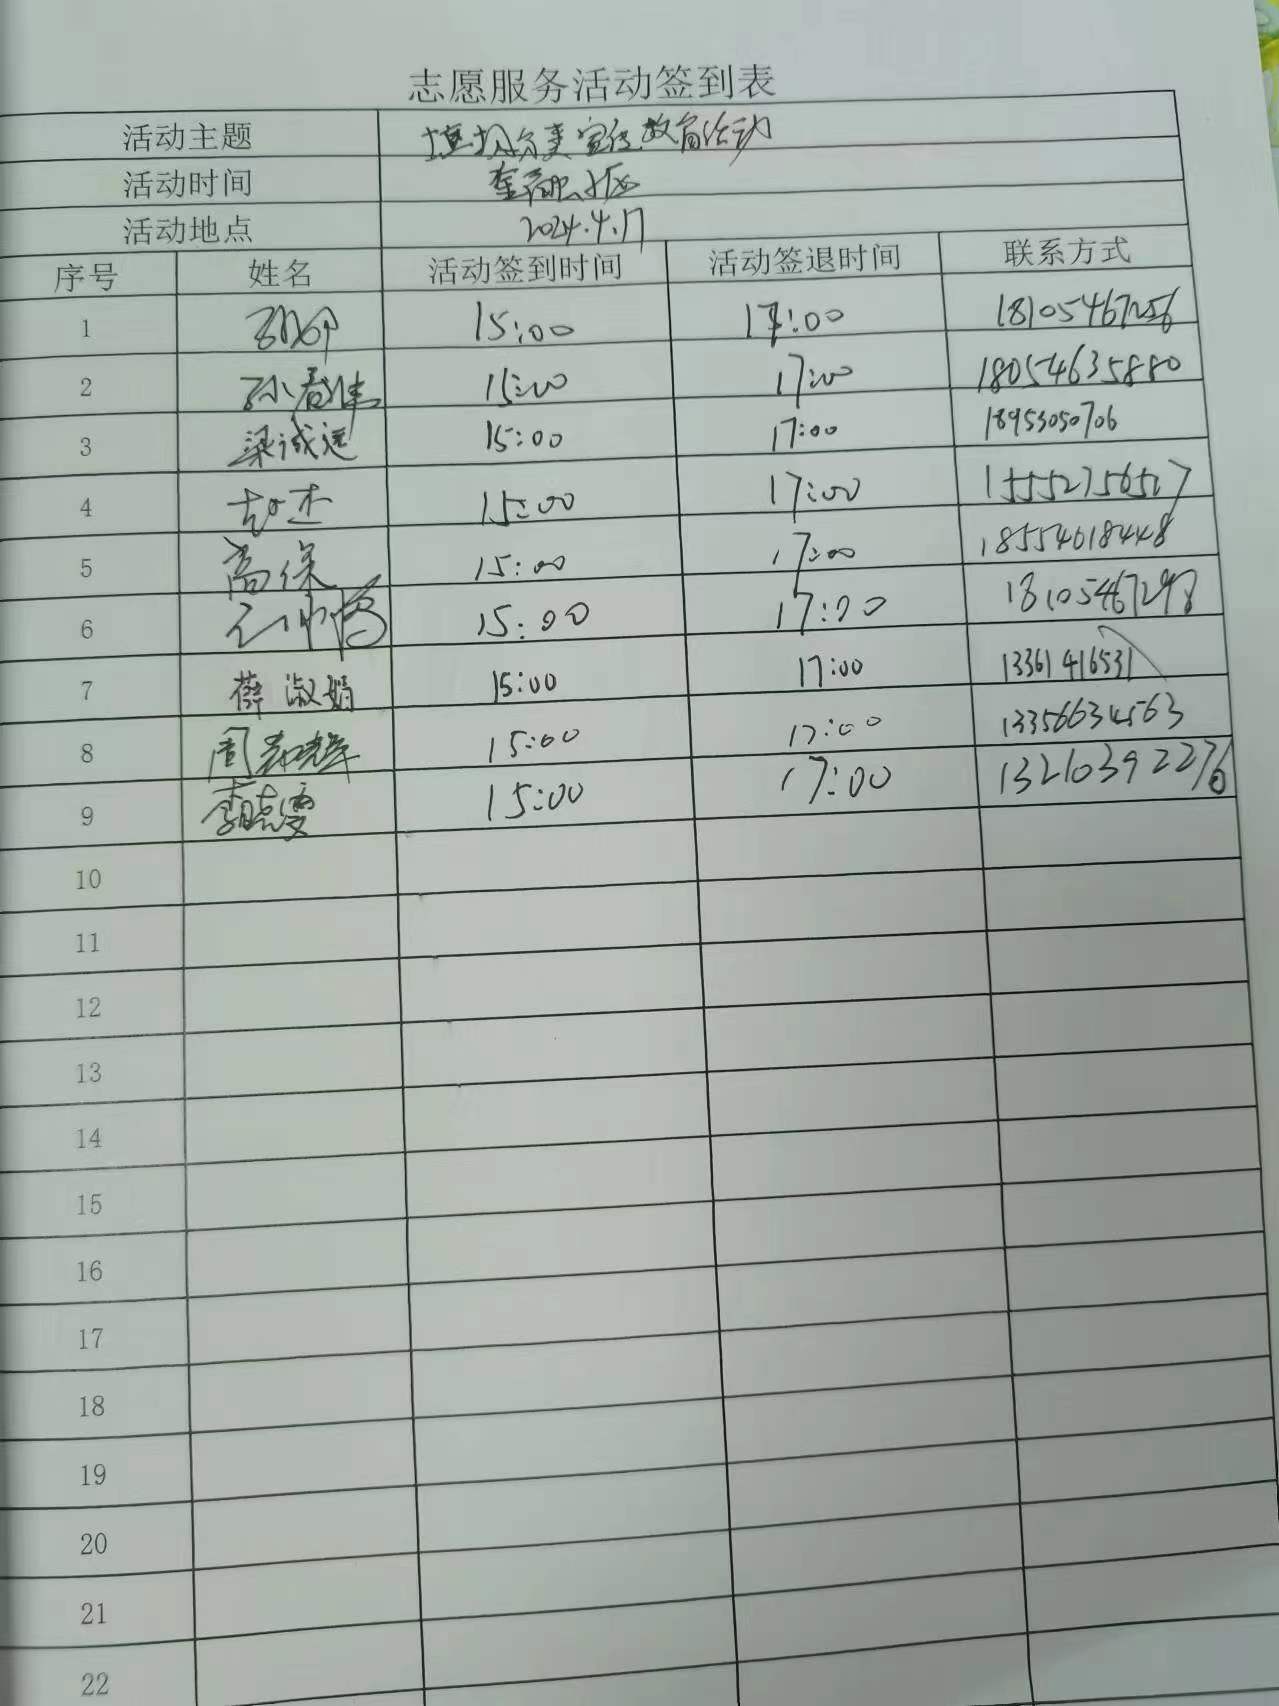 志愿服务活动签到表
活动主题 垃圾分类宣传教育活动
活动时间
活动地点 2024.4.17
序号 姓名 活动签到时间 活动签退时间 联系方式
1 15:00 17:00 18105467256
2 孙春佳 15:00 17:00 18054635880
3 梁诚远 15:00 17:00 18953050706
4 赵杰 15:00 17:00 15552756517
5 高保 15:00 17:00 18554618448
6 15:00 17:00 18105467298
7 薛淑娟 15:00 17:00 13361416531
8 周 15:00 17:00 13356634563
9 李晓雯 15:00 17:00 13210392276
10
11
12
13
14
15
16
17
18
19
20
21
22